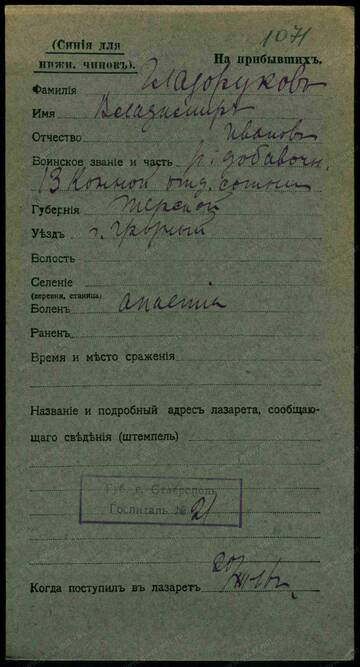 1071
(Синія для нижн. чиновъ).
На прибывшихъ.
Фамилія Гладоруковъ
Имя Владиміръ
Отчество Ивановъ
Воинское званіе и часть р. добавочн.
13 Конной отд. сотни
Губернія Терской
Уѣздъ г. Грозный
Волость
Селеніе
(деревня, станица)
Боленъ анаемія
Раненъ
Время и мѣсто сраженія
Названіе и подробный адресъ лазарета, сообщаю-
щаго свѣдѣнія (штемпель)
Губ. г. Ставрополь
Госпиталь № 21
20/
Когда поступилъ въ лазаретъ